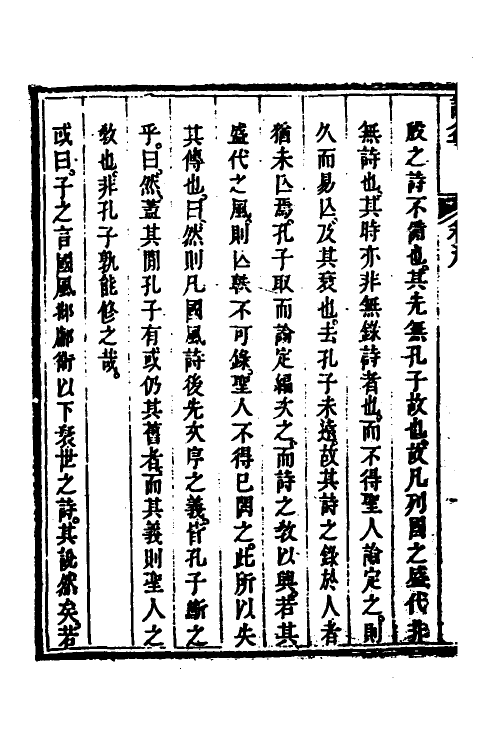 殷之詩不備也其先無孔子故也故凡列國之盛代非
無詩也其時亦非無錄詩者也而不得聖人論定之則
久而易亾及其衰也去孔子未遠故其詩之錄於人者
猶未亾焉孔子取而論定編次之而詩之敎以興若其
盛代之風則亾軼不可錄聖人不得已闕之此所以失
其傳也曰然則凡國風詩後先次序之義皆孔子斷之
乎曰然蓋其閒孔子有或仍其舊者而其義則聖人之
敎也非孔子孰能修之哉
或曰子之言國風邶鄘衛以下衰世之詩其說然矣若